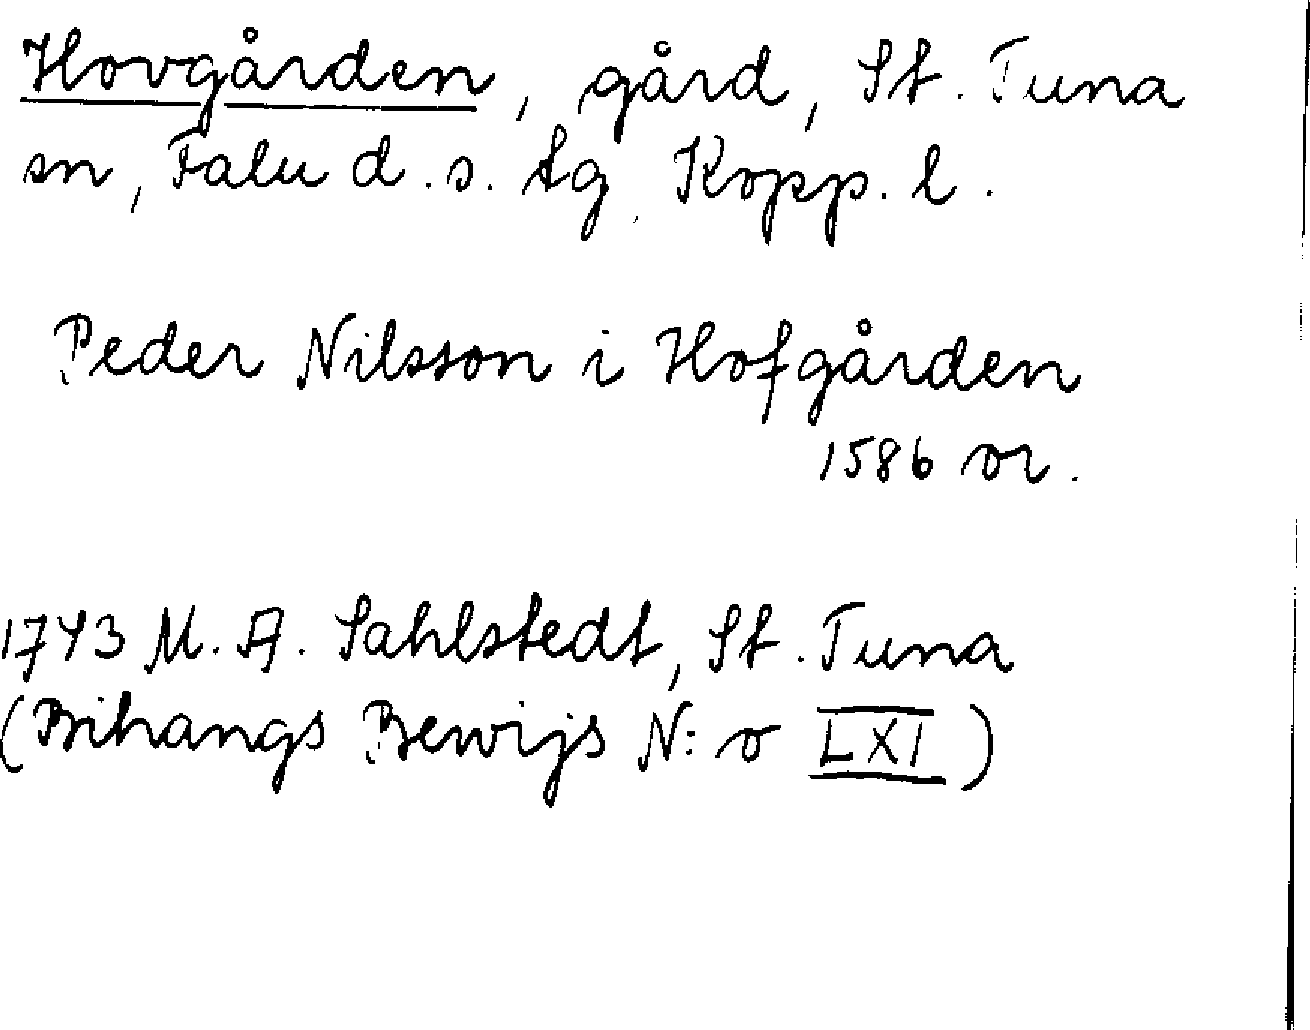 Hovgården, gård, St. Tuna
sn, Falu d. s. tg, Kopp. l.
Peder Nilsson i Hofgården
1586 or.
1743 M. A. Sahlstedt, St. Tuna
(Bihangs Bewijs N:o LXI)